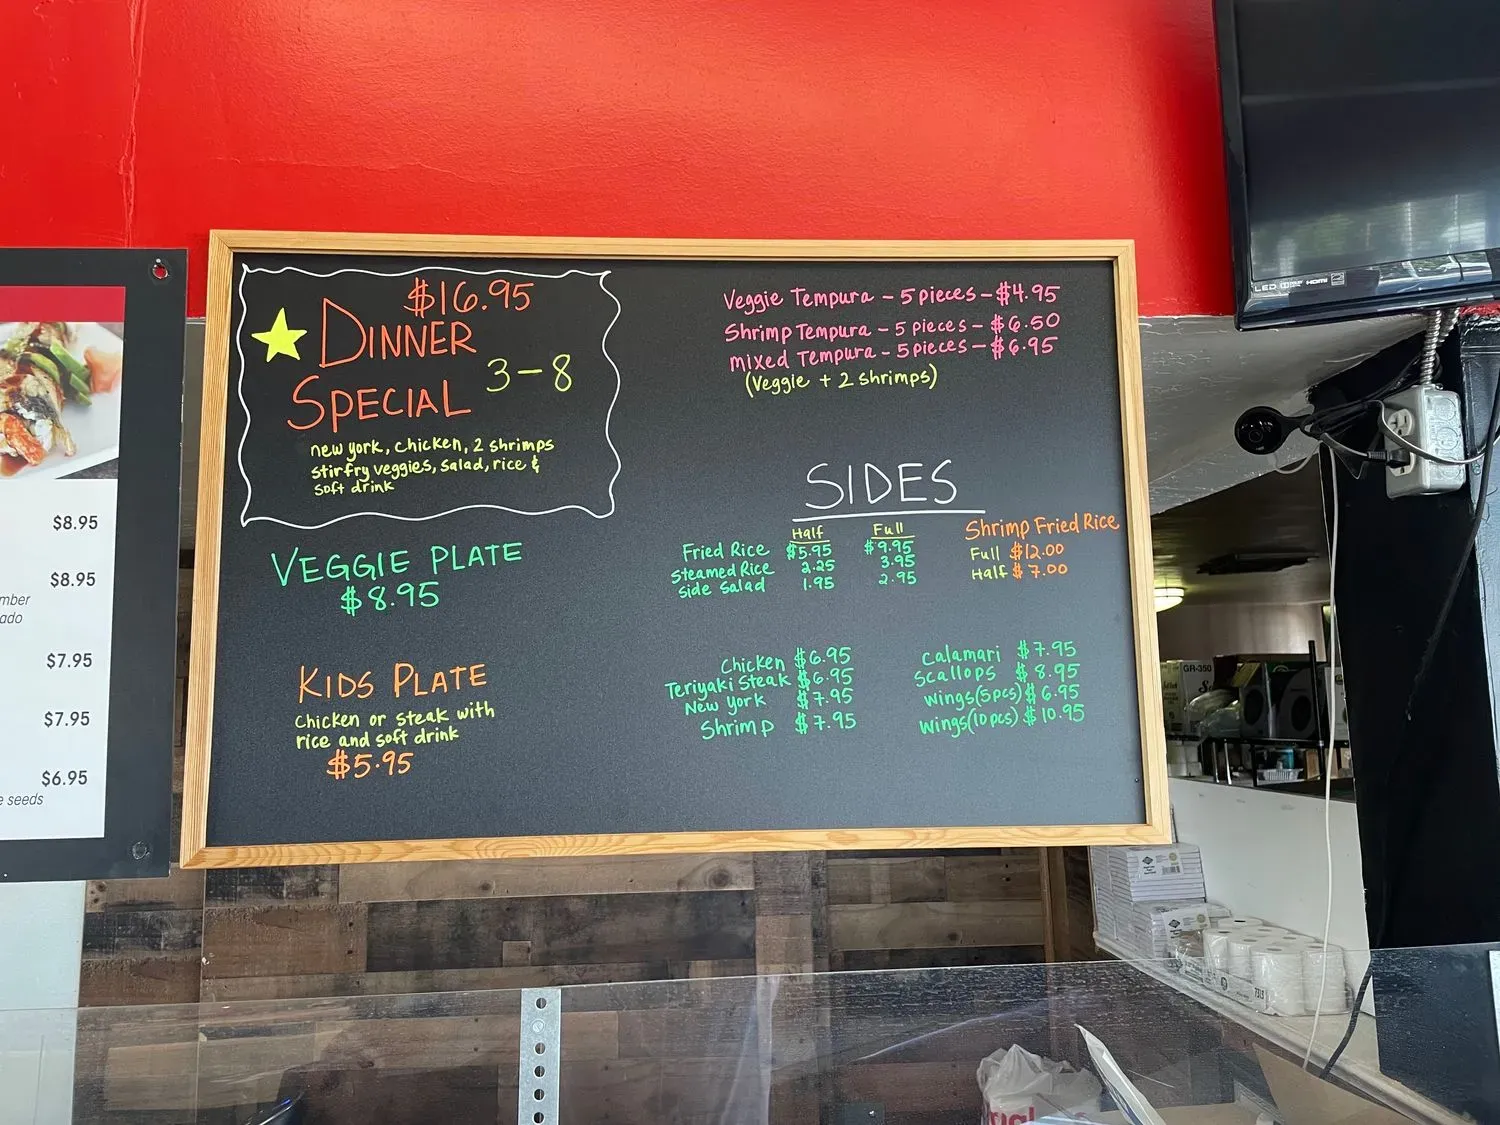 $16.95
DINNER
SPECIAL 3-8
new york, chicken, 2 shrimps
stirfry veggies, salad, rice &
soft drink
VEGGIE PLATE
$8.95
KIDS PLATE
chicken or steak with
rice and soft drink
$5.95
Veggie Tempura - 5 pieces - $4.95
Shrimp Tempura - 5 pieces - $6.50
mixed Tempura - 5 pieces - $6.95
(veggie + 2 shrimps)
SIDES
Half Full
Fried Rice $5.95 $9.95
Steamed Rice 2.25 3.95
Side Salad 1.95 2.95
Shrimp Fried Rice
Full $12.00
Half $7.00
Chicken $6.95
Teriyaki Steak $6.95
New York $7.95
Shrimp $7.95
calamari $7.95
scallops $8.95
wings(5pcs) $6.95
wings(10pcs) $10.95
$8.95
$8.95
mber
ado
$7.95
$7.95
$6.95
e seeds
LED
HDMI
GR-350